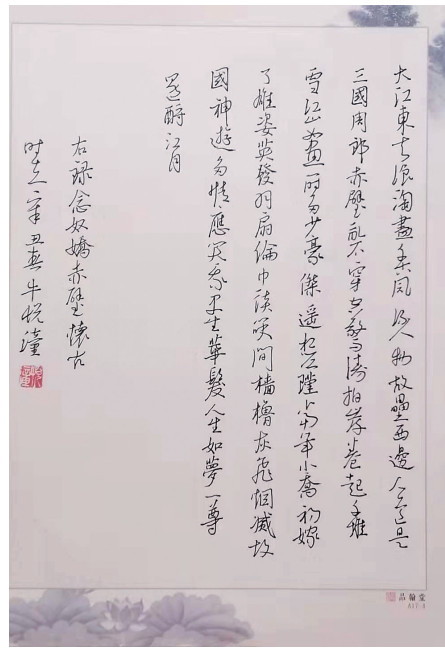 大江東去浪淘盡千古風流人物故壘西邊人道是
三國周郎赤壁亂石穿空驚濤拍岸卷起千堆
雪江山如畫一時多少豪傑遙想公瑾當年小喬初嫁
了雄姿英發羽扇綸巾談笑間檣櫓灰飛烟滅故
國神遊多情應笑我早生華髮人生如夢一尊
還酹江月
右録念奴嬌赤壁懷古
时在辛丑春牛悦潼
品翰堂